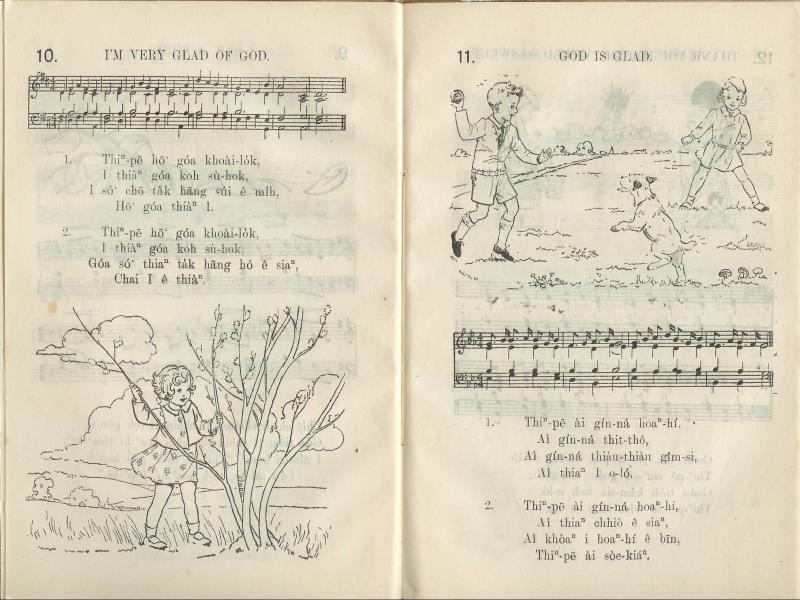 10.
I'M VERY GLAD OF GOD.
1. Thiⁿ-pē hō͘ góa khoài-lo̍k,
I thiàⁿ góa koh sù-hok,
I só͘ chō ta̍k hāng súi ê mi̍h,
Hō͘ góa thiàⁿ I.
2. Thiⁿ-pē hō͘ góa khoài-lo̍k,
I thiàⁿ góa koh sù-hok,
Góa só͘ thiaⁿ ta̍k hāng hó ê siaⁿ,
Chai I ê thiàⁿ.
11.
GOD IS GLAD.
1. Thiⁿ-pē ài gín-ná hoaⁿ-hí,
Ài gín-ná thit-thô,
Ài gín-ná thiàu-thiàu gîm-si,
Ài thiaⁿ I o-ló.
2. Thiⁿ-pē ài gín-ná hoaⁿ-hí,
Ài thiaⁿ chhiò ê siaⁿ,
Ài khòaⁿ i hoaⁿ-hí ê bīn,
Thiⁿ-pē ài sòe-kiáⁿ.